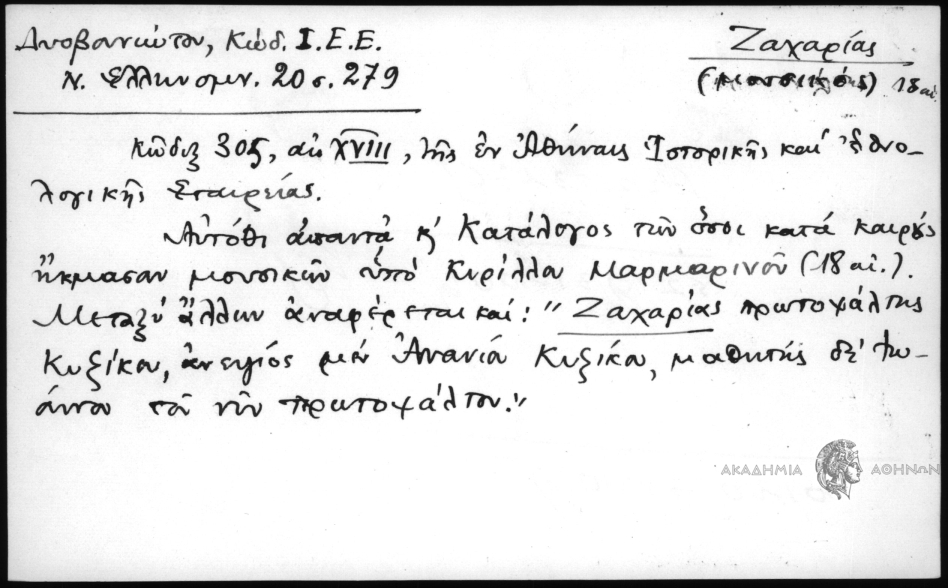 Δυοβουνιώτου, Κώδ. Ι.Ε.Ε.
Ν. Ἑλληνομν. 20 σ. 279
Ζαχαρίας
(μουσικός) 18 αἰ.
Κῶδιξ 305, αἰῶ XVIII, τῆς ἐν Ἀθήναις Ἱστορικῆς καί Ἐθνο-
λογικῆς Ἑταιρείας.
Αὐτόθι ἀπαντᾷ κ' Κατάλογος τῶν ὅσοι κατά καιρούς
ἤκμασαν μουσικῶν ὑπό Κυρίλλου Μαρμαρινοῦ (18 αἰ.).
Μεταξύ ἄλλων ἀναφέρεται καί: "Ζαχαρίας πρωτοψάλτης
Κυζίκου, ἀνεψιός μέν Ἀνανία Κυζίκου, μαθητής δέ Ἰω-
άννου τοῦ νῦν πρωτοψάλτου."
ΑΚΑΔΗΜΙΑ ΑΘΗΝΩΝ